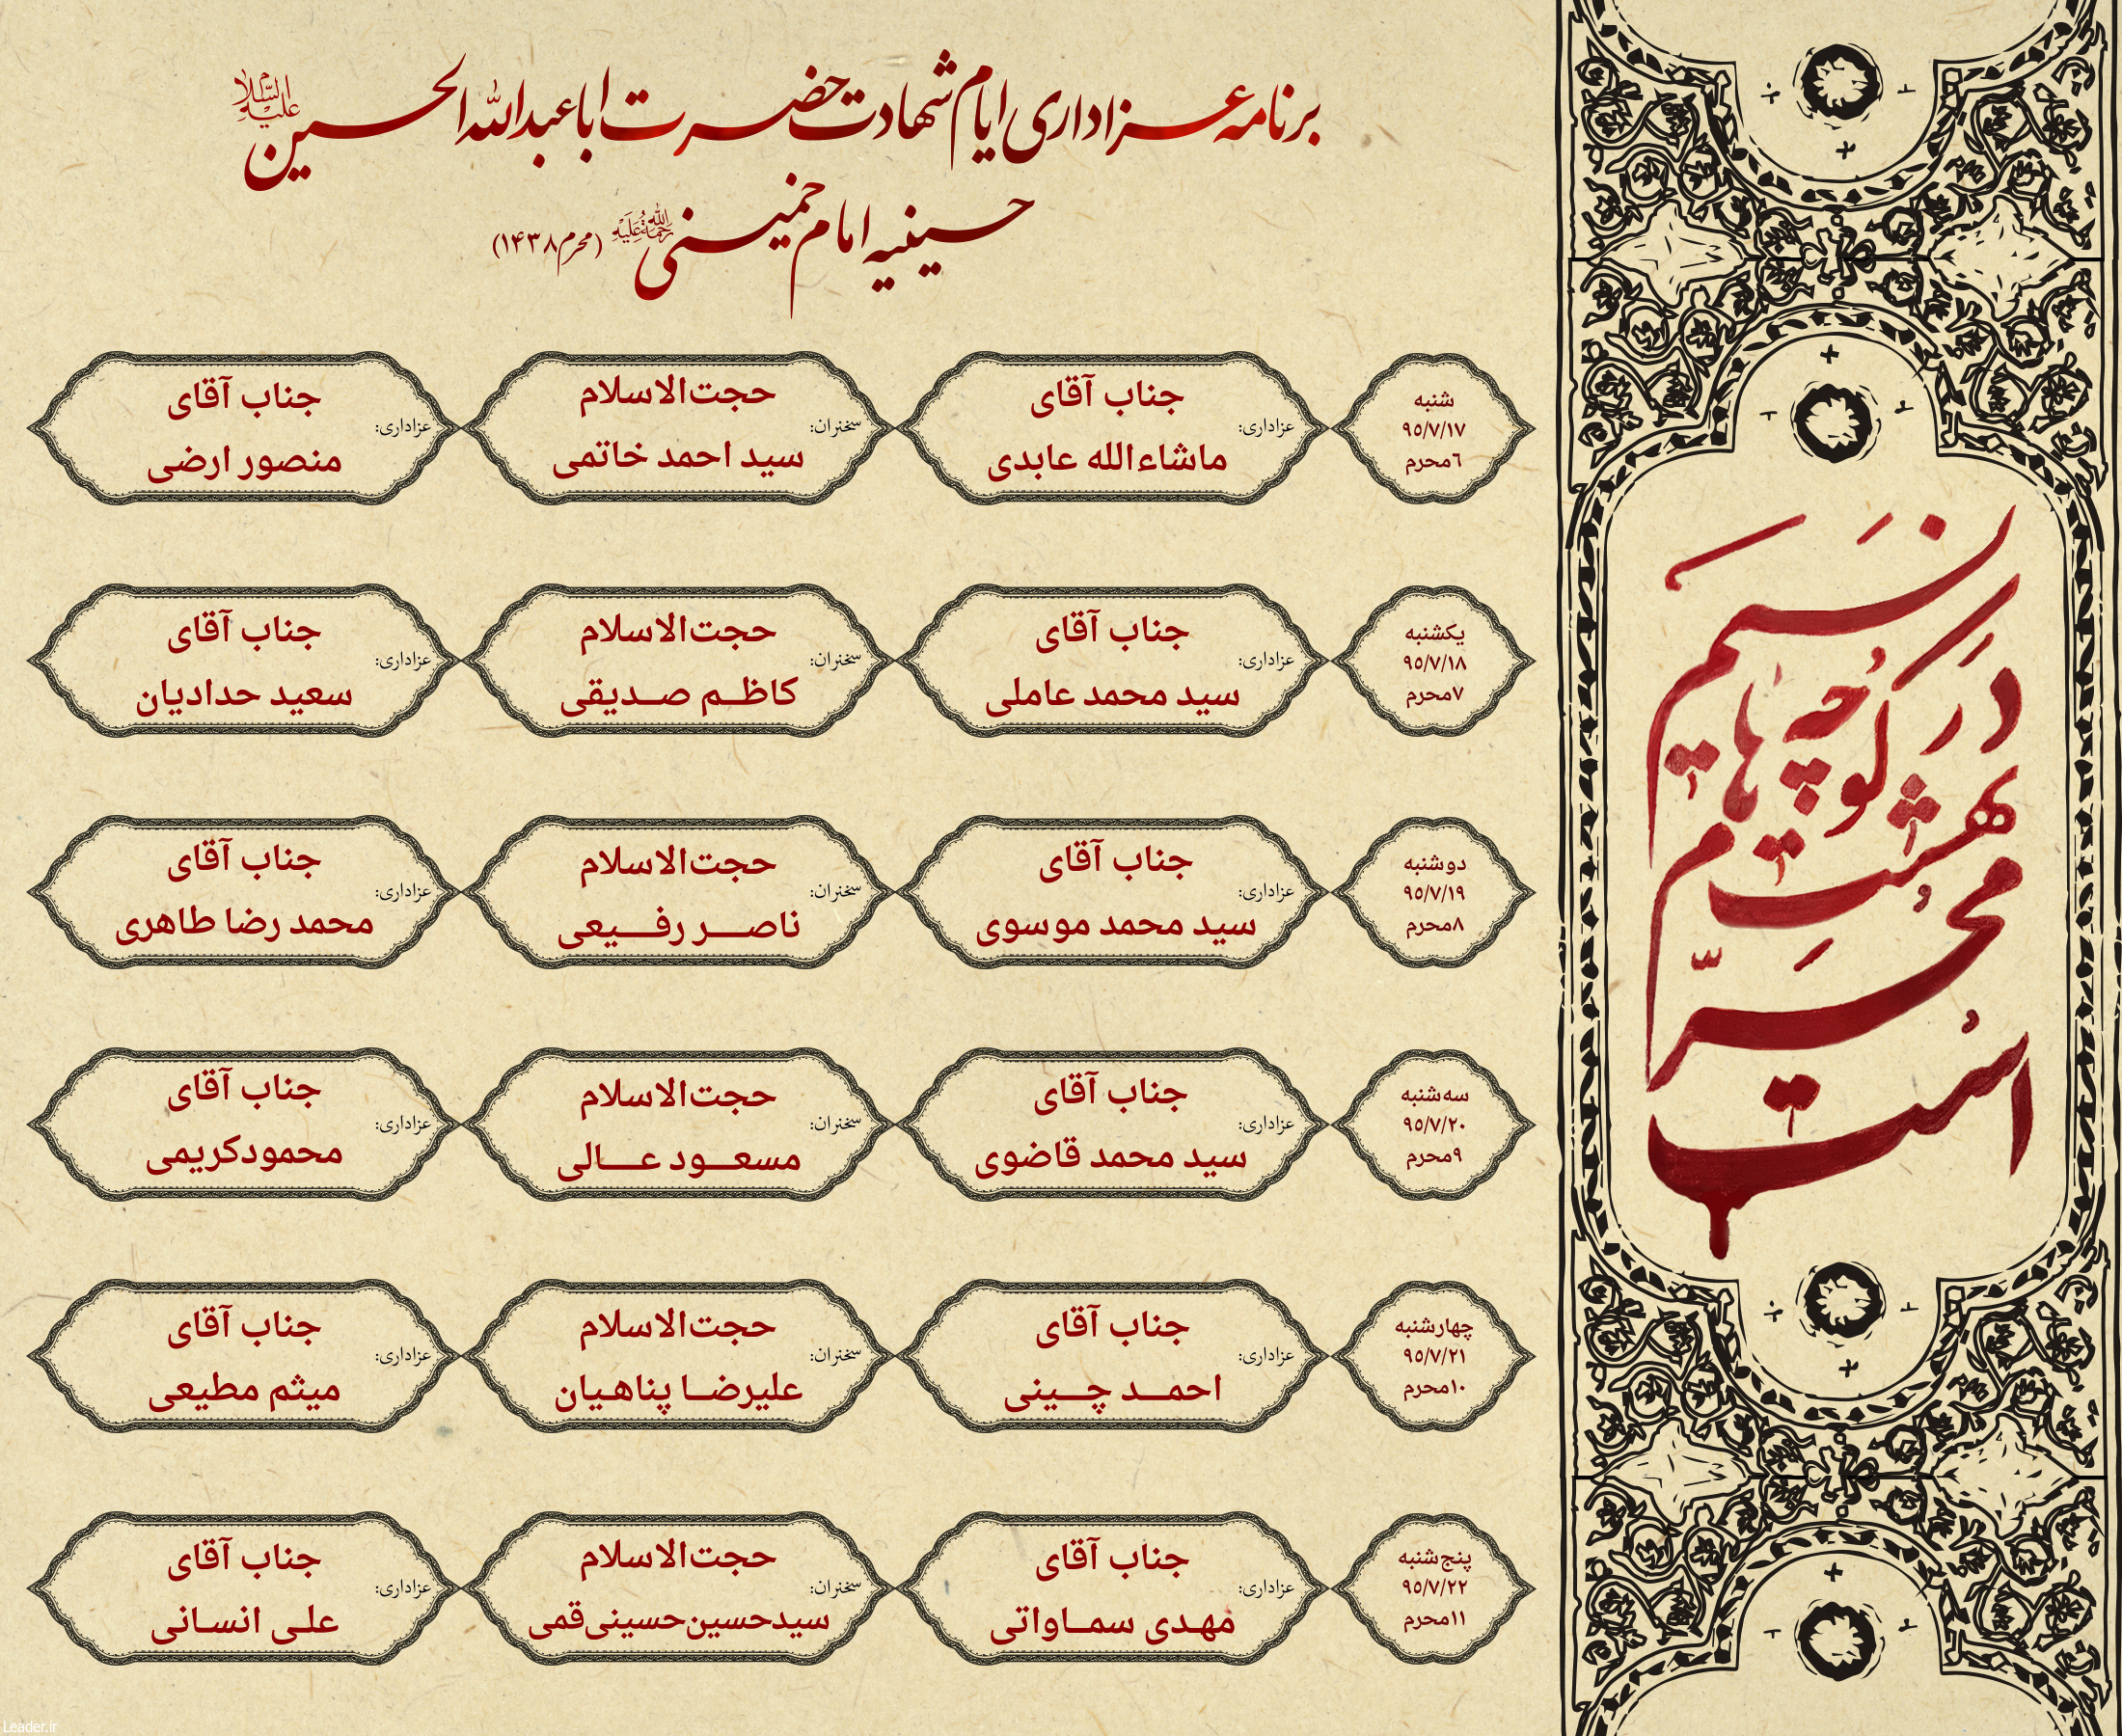 برنامه عزاداری ایام شهادت حضرت اباعبدالله الحسین علیه السلام
حسینیه امام خمینی رحمة الله علیه (محرم ۱۴۳۸)
شنبه
۹۵/۷/۱۷
۶محرم
عزاداری:
جناب آقای
ماشاءالله عابدی
سخنران:
حجت‌الاسلام
سید احمد خاتمی
عزاداری:
جناب آقای
منصور ارضی
یکشنبه
۹۵/۷/۱۸
۷محرم
عزاداری:
جناب آقای
سید محمد عاملی
سخنران:
حجت‌الاسلام
کاظم صدیقی
عزاداری:
جناب آقای
سعید حدادیان
دوشنبه
۹۵/۷/۱۹
۸محرم
عزاداری:
جناب آقای
سید محمد موسوی
سخنران:
حجت‌الاسلام
ناصر رفیعی
عزاداری:
جناب آقای
محمد رضا طاهری
سه‌شنبه
۹۵/۷/۲۰
۹محرم
عزاداری:
جناب آقای
سید محمد قاضوی
سخنران:
حجت‌الاسلام
مسعود عالی
عزاداری:
جناب آقای
محمودکریمی
چهارشنبه
۹۵/۷/۲۱
۱۰محرم
عزاداری:
جناب آقای
احمد چینی
سخنران:
حجت‌الاسلام
علیرضا پناهیان
عزاداری:
جناب آقای
میثم مطیعی
پنج‌شنبه
۹۵/۷/۲۲
۱۱محرم
عزاداری:
جناب آقای
مهدی سماواتی
سخنران:
حجت‌الاسلام
سیدحسین‌حسینی‌قمی
عزاداری:
جناب آقای
علی انسانی
نسیم
در کوچه‌های
بهشتم
محرّم
است
Leader.ir